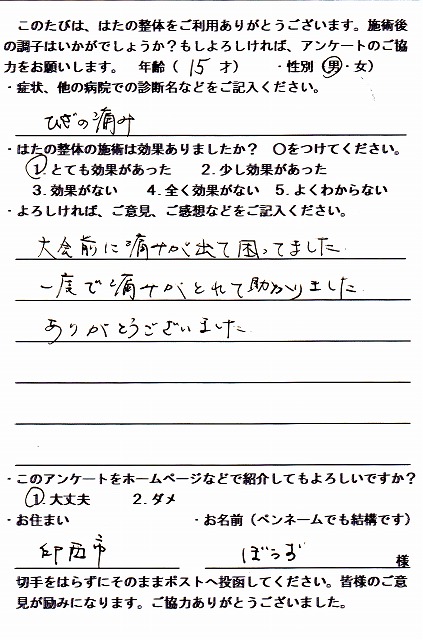 このたびは、はたの整体をご利用ありがとうございます。施術後
の調子はいかがでしょうか？もしよろしければ、アンケートのご協
力をお願いします。 年齢（ 15 才） ・性別（男・女）
・症状、他の病院での診断名などをご記入ください。
ひざの痛み
・はたの整体の施術は効果ありましたか？ 〇をつけてください。
1. とても効果があった 2. 少し効果があった
3. 効果がない 4. 全く効果がない 5. よくわからない
・よろしければ、ご意見、ご感想などをご記入ください。
大会前に痛みが出て困ってました.
一度で痛みがとれて助かりました.
ありがとうございました.
・このアンケートをホームページなどで紹介してもよろしいですか？
1. 大丈夫 2. ダメ
・お住まい ・お名前（ペンネームでも結構です）
印西市 ぼうず 様
切手をはらずにそのままポストへ投函してください。皆様のご意
見が励みになります。ご協力ありがとうございました。